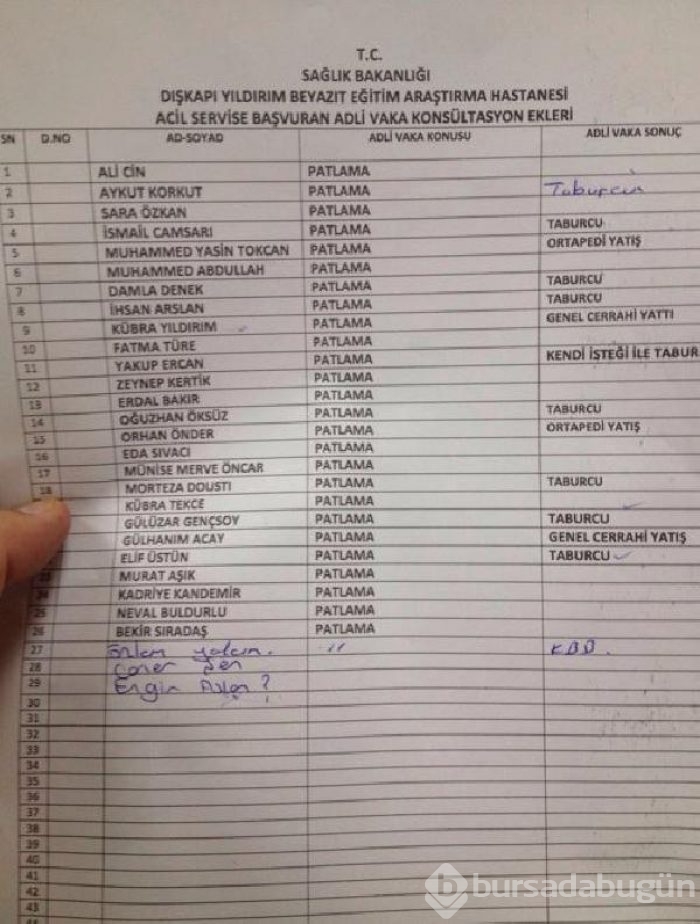 T.C.
SAĞLIK BAKANLIĞI
DIŞKAPI YILDIRIM BEYAZIT EĞİTİM ARAŞTIRMA HASTANESİ
ACİL SERVİSE BAŞVURAN ADLİ VAKA KONSÜLTASYON EKLERİ
SN D.NO AD-SOYAD ADLİ VAKA KONUSU ADLİ VAKA SONUÇ
1 ALİ CİN PATLAMA
2 AYKUT KORKUT PATLAMA Taburcu
3 SARA ÖZKAN PATLAMA
4 İSMAİL CAMSARI PATLAMA TABURCU
5 MUHAMMED YASİN TOKCAN PATLAMA ORTAPEDİ YATIŞ
6 MUHAMMED ABDULLAH PATLAMA
7 DAMLA DENEK PATLAMA TABURCU
8 İHSAN ARSLAN PATLAMA TABURCU
9 KÜBRA YILDIRIM PATLAMA GENEL CERRAHİ YATTI
10 FATMA TÜRE PATLAMA
11 YAKUP ERCAN PATLAMA KENDİ İSTEĞİ İLE TABUR
12 ZEYNEP KERTİK PATLAMA
13 ERDAL BAKIR PATLAMA
14 OĞUZHAN ÖKSÜZ PATLAMA TABURCU
15 ORHAN ÖNDER PATLAMA ORTAPEDİ YATIŞ
16 EDA SIVACI PATLAMA
17 MÜNİSE MERVE ÖNCAR PATLAMA
18 MORTEZA DOUSTI PATLAMA TABURCU
KÜBRA TEKCE PATLAMA
GÜLÜZAR GENÇSOY PATLAMA TABURCU
GÜLHANIM ACAY PATLAMA GENEL CERRAHİ YATIŞ
ELİF ÜSTÜN PATLAMA TABURCU
MURAT AŞIK PATLAMA
24 KADRİYE KANDEMİR PATLAMA
25 NEVAL BULDURLU PATLAMA
26 BEKİR SIRADAŞ PATLAMA
27 " KBB.
28 Şen
29 Engin ?
30
31
32
33
34
35
36
37
38
39
40
41
42
43
bursadabugün